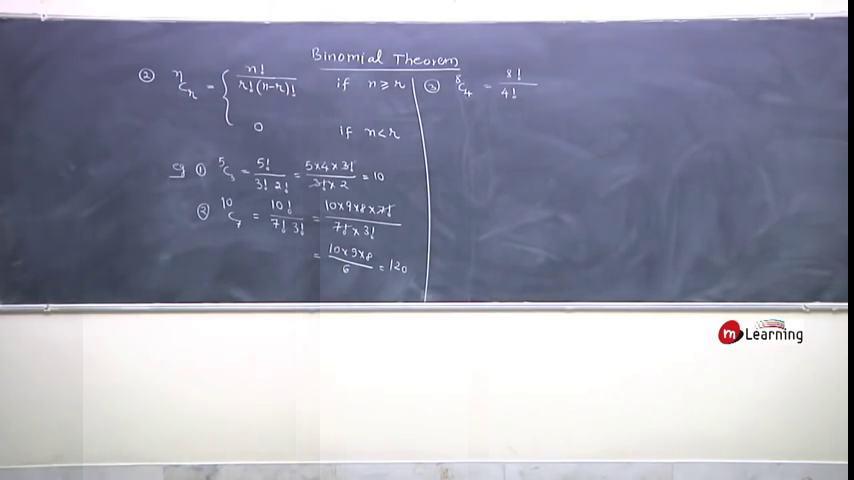 Binomial Theorem
② ⁿCᵣ = { n! / r!(n-r)! if n ≥ r
0 if n < r
eg ① ⁵C₃ = 5! / 3! 2! = 5×4×3! / 3!×2 = 10
② ¹⁰C₇ = 10! / 7! 3! = 10×9×8×7! / 7!×3!
= 10×9×8 / 6 = 120
③ ⁸C₄ = 8! / 4!
m Learning